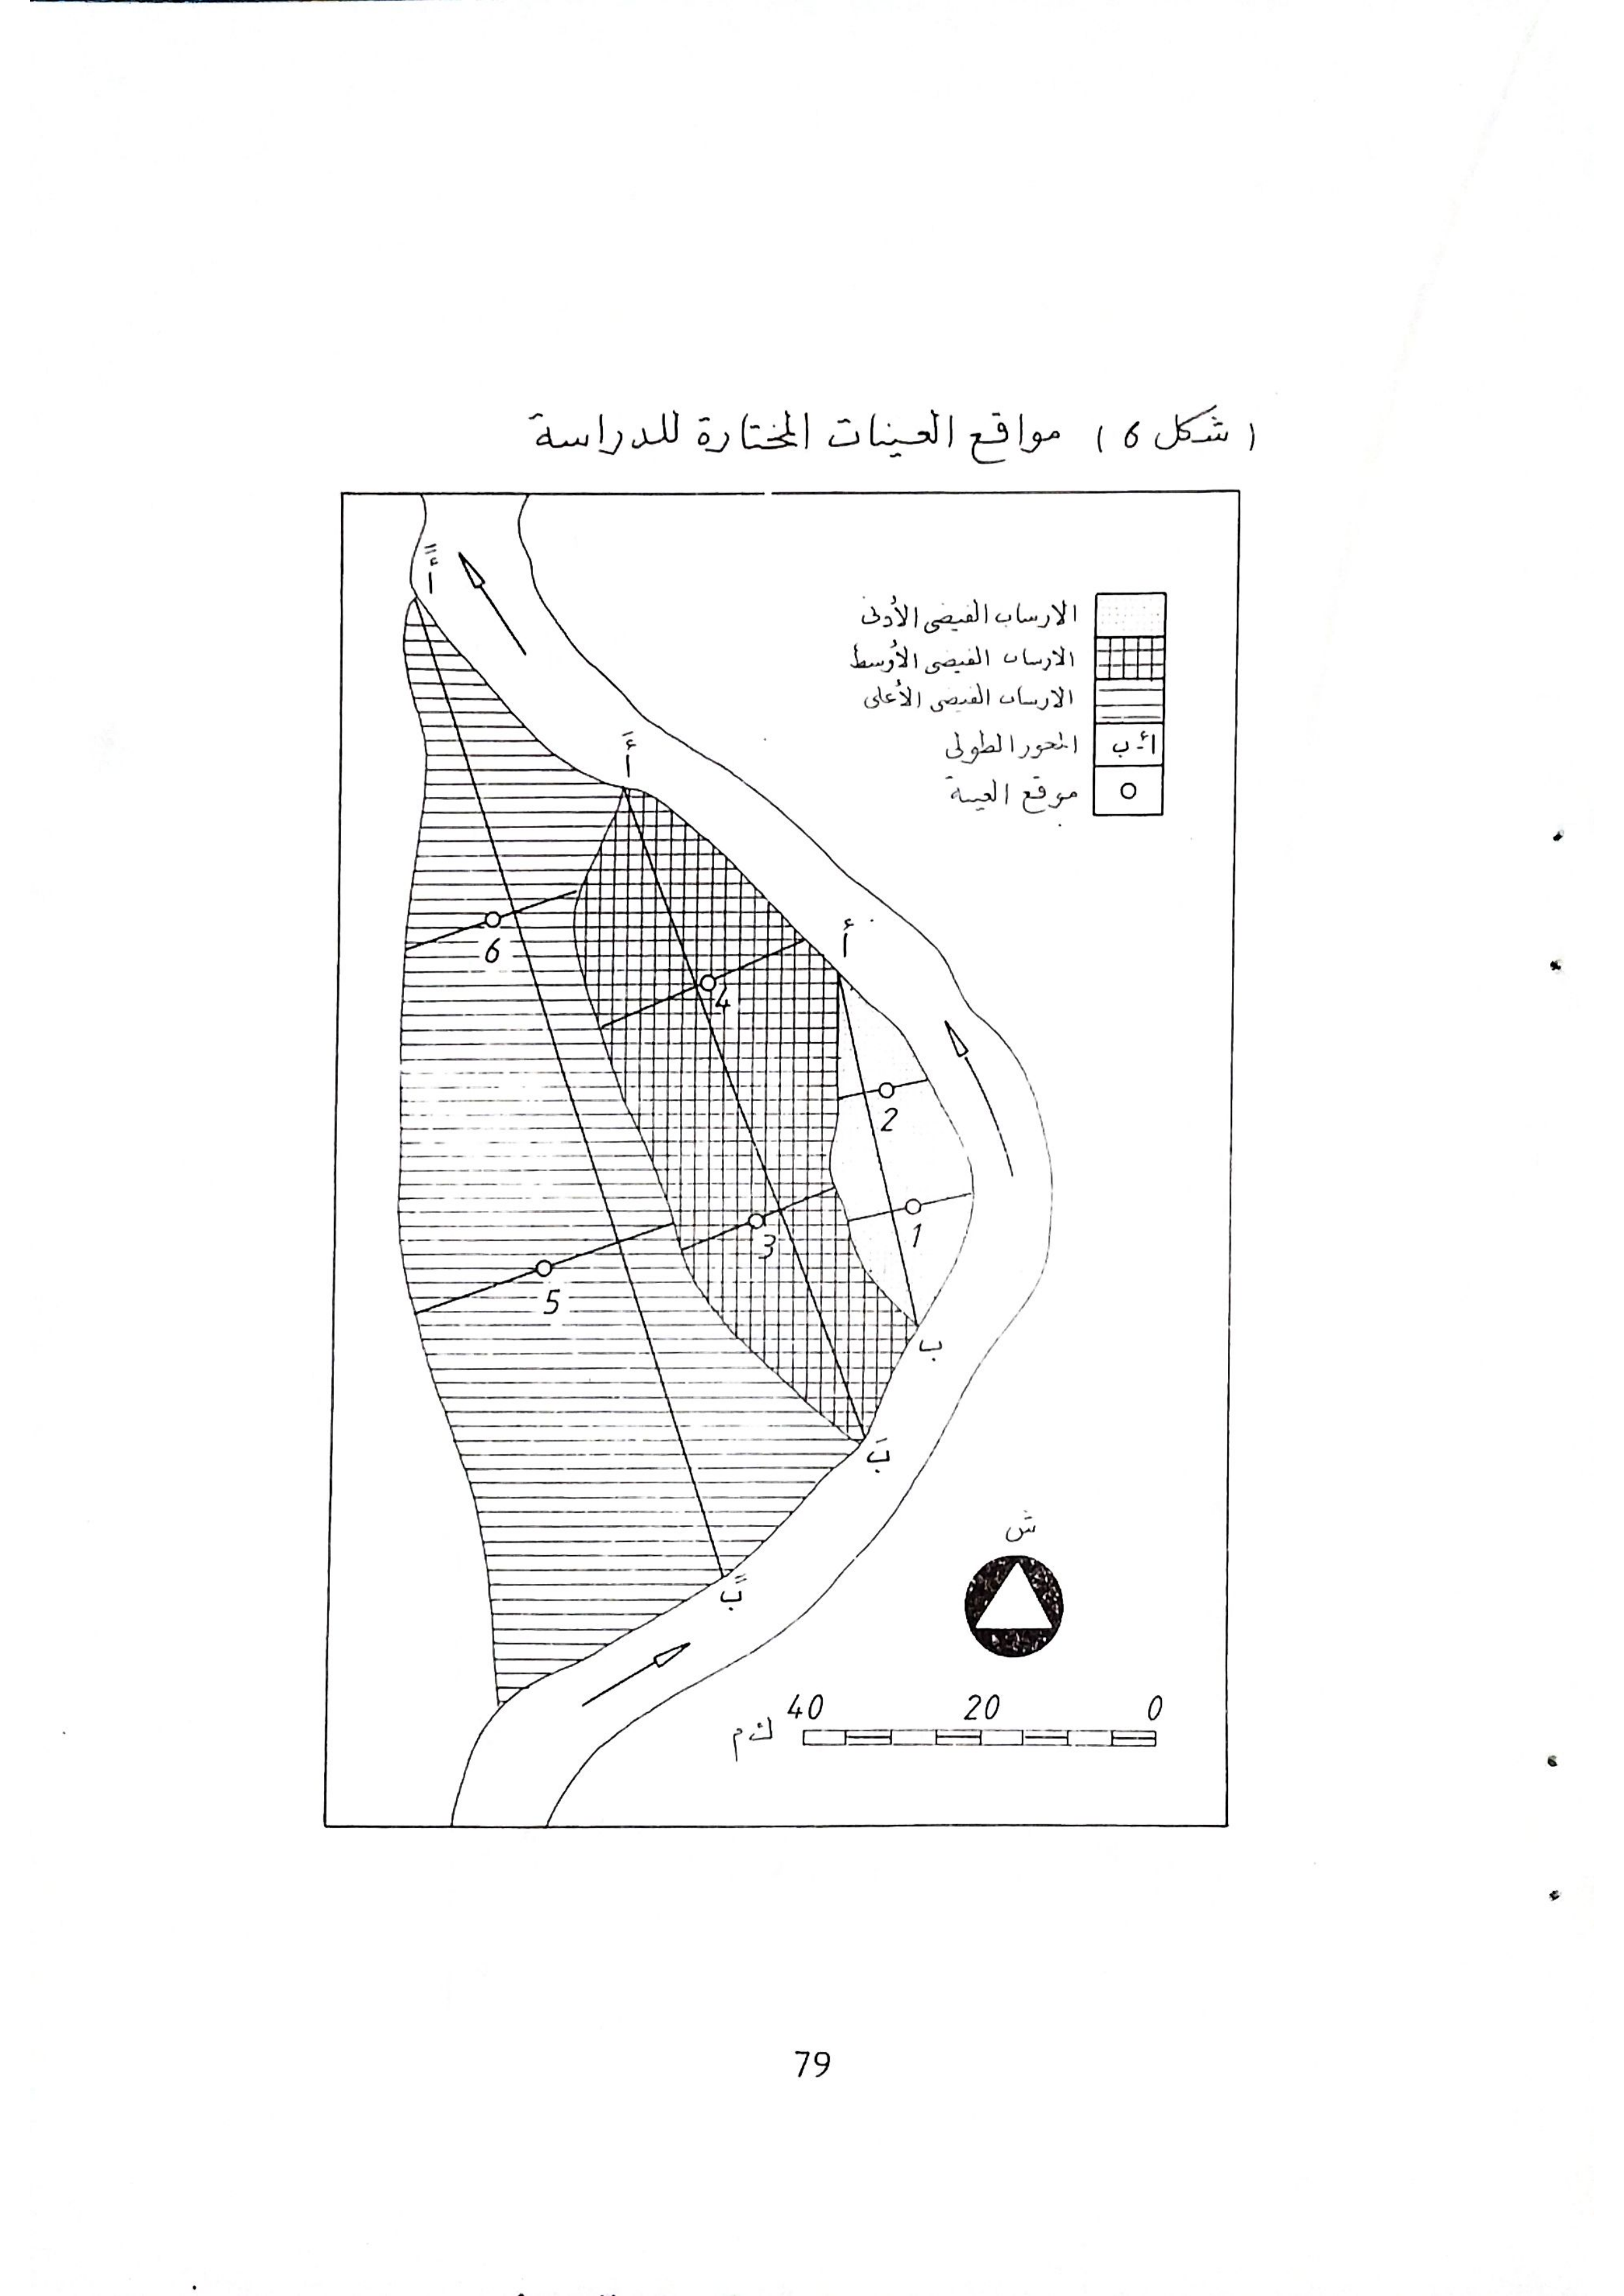 (شكل 6) مواقع العينات المختارة للدراسة
الارساب الفيضى الأدنى
الارساب الفيضى الأوسط
الارساب الفيضى الأعلى
أ-ب المحور الطولى
موقع العينة
أً
أَ
أ
6
4
2
1
3
5
ب
بَ
بً
ش
40 20 0
ك م
79